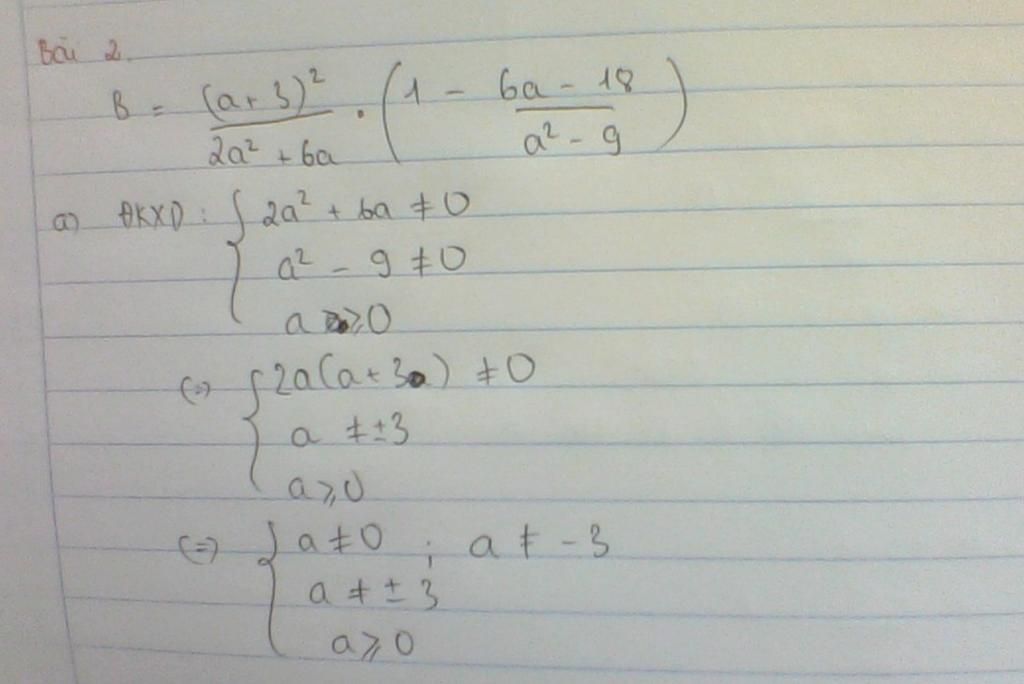 Bài 2.
B = (a+3)² / (2a² + 6a) . (1 - (6a - 18) / (a² - 9))
a) ĐKXĐ : { 2a² + 6a ≠ 0
a² - 9 ≠ 0
a ≥ 0
(=) { 2a(a+3) ≠ 0
a ≠ ±3
a ≥ 0
(=) { a ≠ 0 ; a ≠ -3
a ≠ ± 3
a ≥ 0